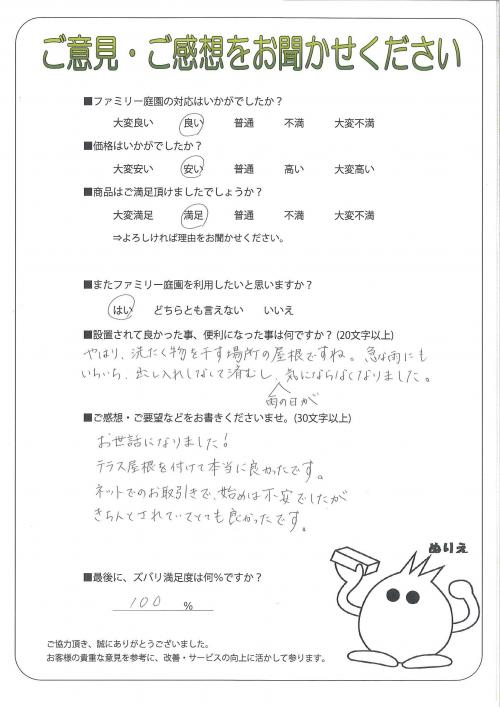 ご意見・ご感想をお聞かせください
■ファミリー庭園の対応はいかがでしたか？
大変良い 良い 普通 不満 大変不満
■価格はいかがでしたか？
大変安い 安い 普通 高い 大変高い
■商品はご満足頂けましたでしょうか？
大変満足 満足 普通 不満 大変不満
⇒よろしければ理由をお聞かせください。
■またファミリー庭園を利用したいと思いますか？
はい どちらとも言えない いいえ
■設置されて良かった事、便利になった事は何ですか？(20文字以上)
やはり、洗たく物を干す場所の屋根ですね。急な雨にも
いちいち、出し入れしなくて済むし、気にならなくなりました。
雨の日が
■ご感想・ご要望などをお書きくださいませ。(30文字以上)
お世話になりました！
テラス屋根を付けて本当に良かったです。
ネットでのお取引きで、始めは不安でしたが
きちんとされていてとても良かったです。
ぬりえ
■最後に、ズバリ満足度は何％ですか？
100 %
ご協力頂き、誠にありがとうございました。
お客様の貴重な意見を参考に、改善・サービスの向上に活かして参ります。